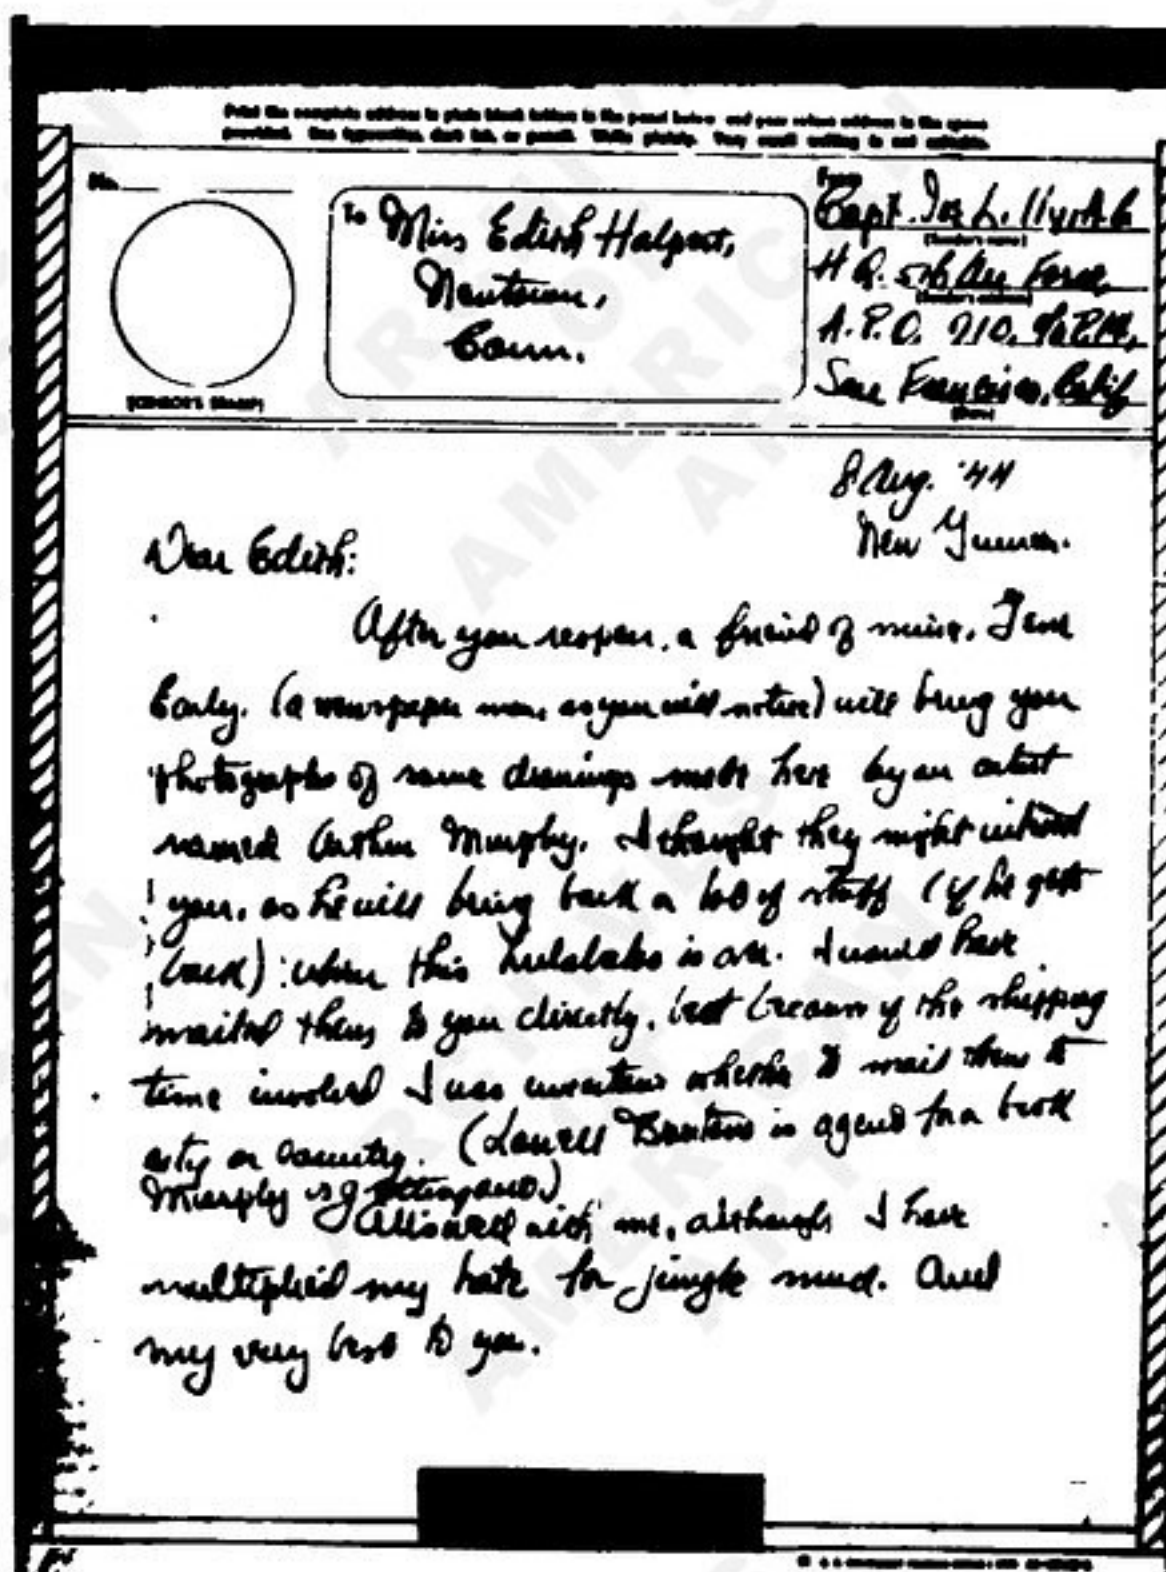 Print the complete address in plain block letters in the panel below and your return address in the space
provided. Use typewriter, dark ink, or pencil. Write plainly. Very small writing is not suitable.
No.
From
To Miss Edith Halpert,
Newtown,
Conn.
Capt. L. A.C.
(Sender's name)
H Q. 5th Air Force
(Sender's address)
A. P. O. 710, c/o P.M.,
San Francisco, Calif
(Date)
(CENSOR'S STAMP)
8 Aug. '44
New Guinea.
Dear Edith:
After you reopen, a friend of mine,
Early, (a newspaper man, as you will notice) will bring you
photographs of some drawings made here by an artist
named Arthur Murphy. I thought they might interest
you, as he will bring back a lot of stuff (if he gets
back) when this hullabaloo is over. I would have
mailed them to you directly, but because of the shipping
time involved I was uncertain whether to mail them to
city or country. ( is agent for a book
Murphy is getting out.)
All is well with me, although I have
multiplied my hate for jungle mud. And
my very best to you.